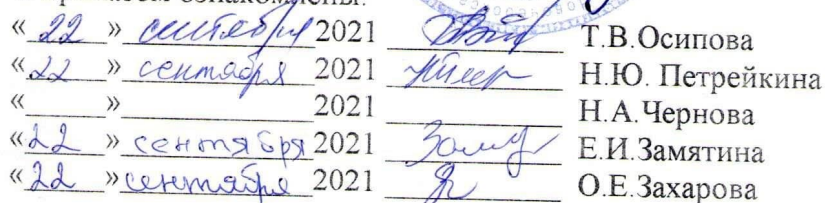 ознакомлены:
« 22 » сентября 2021 Т.В.Осипова
« 22 » сентября 2021 Н.Ю. Петрейкина
« » 2021 Н.А.Чернова
« 22 » сентября 2021 Е.И.Замятина
« 22 » сентября 2021 О.Е.Захарова